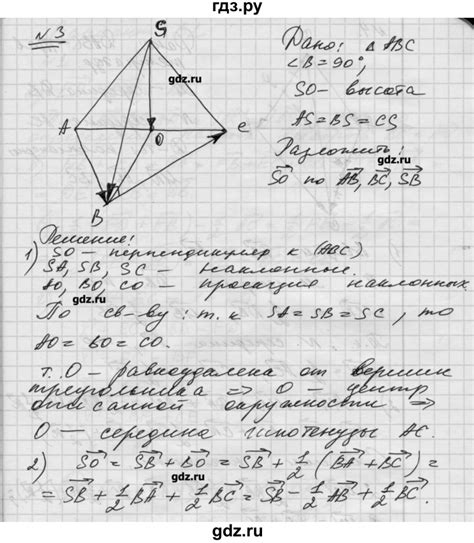 гдз.ру
№3
S
gdz.ru
A
O
C
B
Дано: △ ABC
∠B = 90°,
gdz.ru
SO – высота
AS = BS = CS
Разложить:
gdz.ru
SO по AB, BC, SB
Решение!
1) SO – перпендикуляр к (ABC)
SA, SB, SC – наклонные.
gdz.ru
AO, BO, CO – проекция наклонных.
По св-ву: т.к SA = SB = SC, то
AO = BO = CO.
gdz.ru
т.O – равноудалена от вершин
треугольника ⇒ O – центр
gdz.ru
описанной окружности ⇒
O – середина гипотенузы AC.
gdz.ru
2) SO = SB + BO = SB + 1/2 (BA + BC) =
= SB + 1/2 BA + 1/2 BC = SB - 1/2 AB + 1/2 BC.
gdz.ru